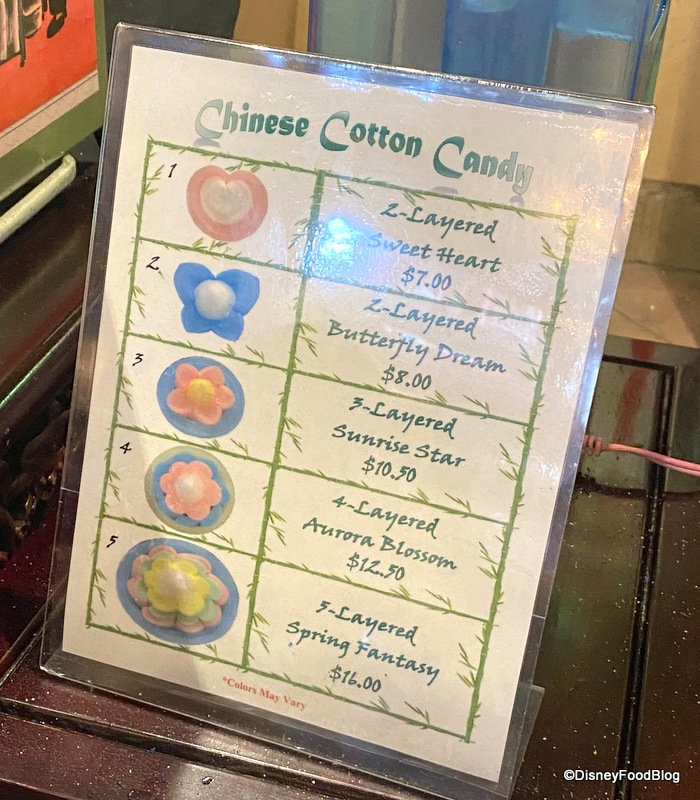 Chinese Cotton Candy
1
2-Layered
Sweet Heart
$7.00
2
2-Layered
Butterfly Dream
$8.00
3
3-Layered
Sunrise Star
$10.50
4
4-Layered
Aurora Blossom
$12.50
5
5-Layered
Spring Fantasy
$16.00
*Colors May Vary
©DisneyFoodBlog